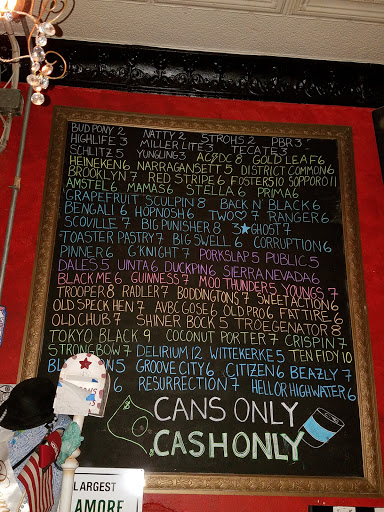 BUD PONY 2 NATTY 2 STROHS 2 PBR 3
HIGHLIFE 3 MILLER LITE 3 TECATE 3
SCHLITZ 5 YUNGLING 3 AC⚡DC 8 GOLD LEAF 6
HEINEKEN 6 NARRAGANSETT 5 DISTRICT COMMON 6
BROOKLYN 7 RED STRIPE 6 FOSTERS 10 SOPPORO 11
AMSTEL 6 MAMAS 6 STELLA 6 PRIMA 6
GRAPEFRUIT SCULPIN 8 BACK N' BLACK 6
BENGALI 6 HOPNOSH 6 TWO♡ 7 RANGER 6
SCOVILLE 7 BIG PUNISHER 8 3★GHOST 7
TOASTER PASTRY 7 BIG SWELL 6 CORRUPTION 6
PINNER 6 G'KNIGHT 7 PORKSLAP 5 PUBLIC 5
DALES 5 UINTA 6 DUCKPIN 6 SIERRA NEVADA 6
BLACK ME 6 GUINNESS 7 MOO THUNDER 5 YOUNGS 7
TROOPER 8 RADLER 7 BODDINGTONS 7 SWEET ACTION 6
OLD SPECK HEN 7 AVBC GOSE 6 OLD PRO 6 FAT TIRE 6
OLD CHUB 7 SHINER BOCK 5 TROEGENATOR 8
TOKYO BLACK 9 COCONUT PORTER 7 CRISPIN 7
STRONGBOW 7 DELIRIUM 12 WITTEKERKE 5 TEN FIDY 10
5 GROOVE CITY 6 CITIZEN 6 BEAZLY 7
6 RESURRECTION 7 HELL OR HIGHWATER 6
CANS ONLY
CASH ONLY
LARGEST
AMORE